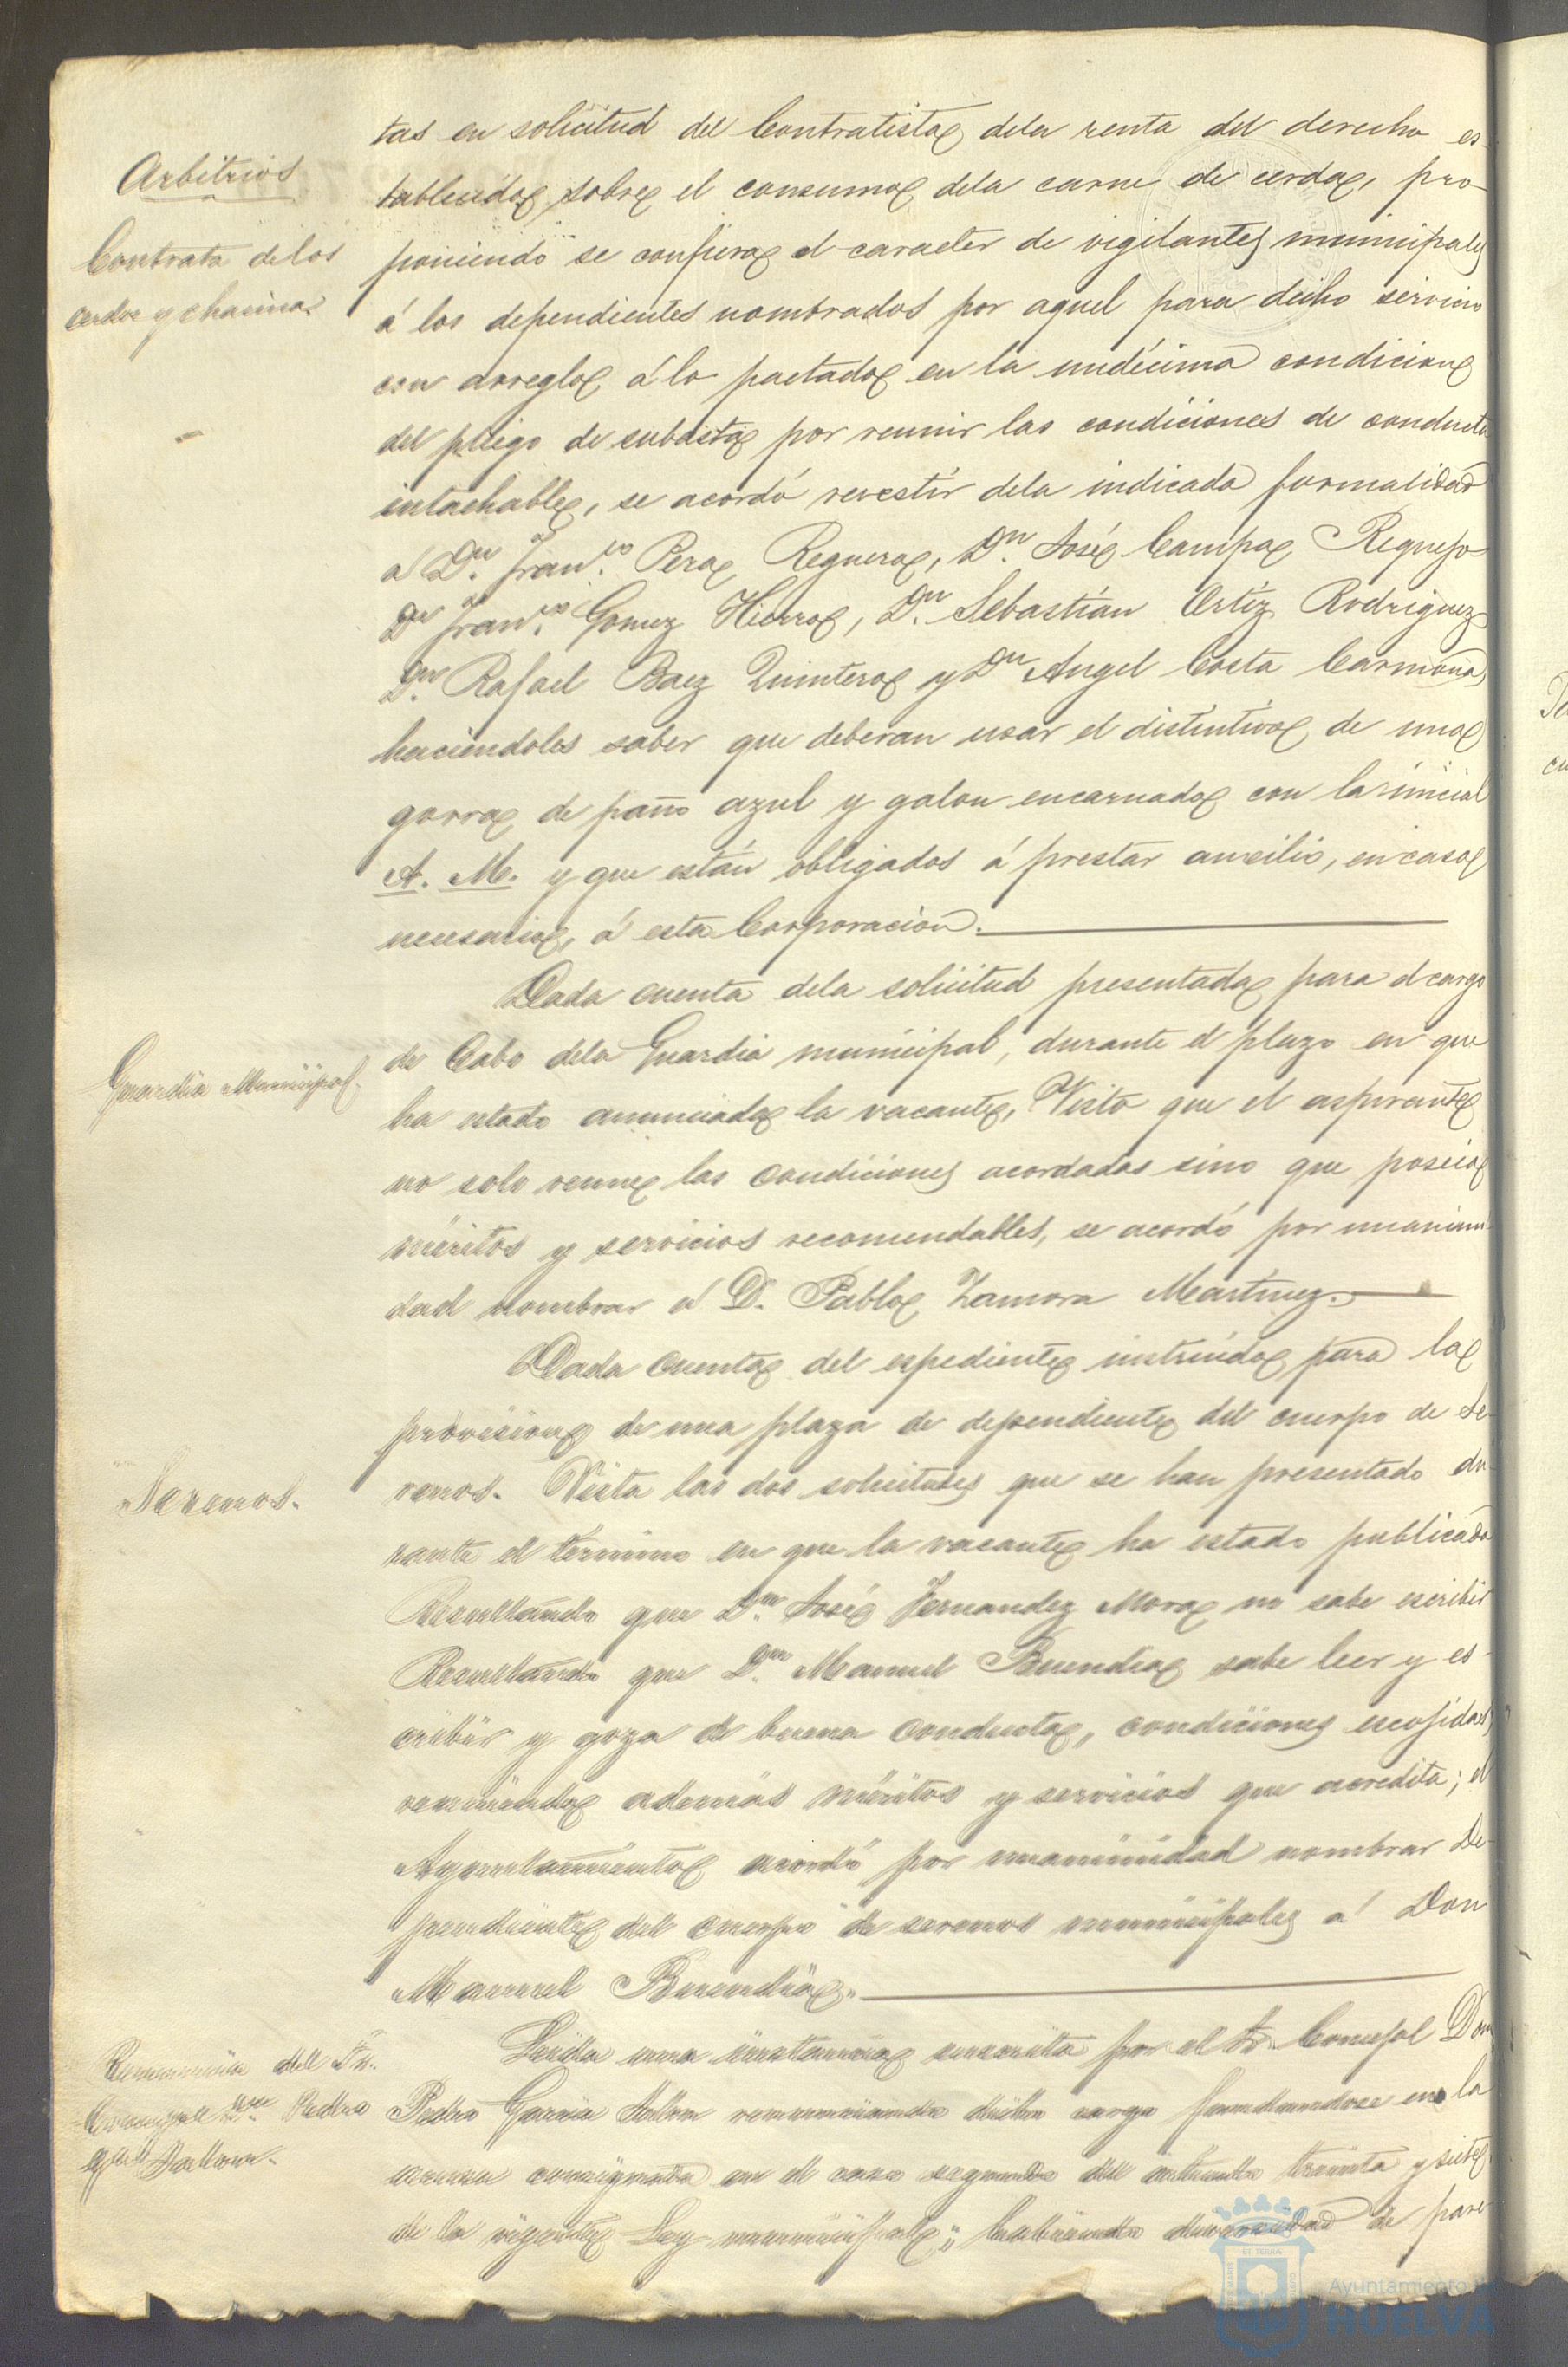 tas en solicitud del Contratista dela renta del derecho es-
Arbitrios
tablecido sobre el consumo dela carne de cerda, pro-
Contrata de los
cerdos y chacinas
poniendo se confiera el caracter de vigilantes municipales
á los dependientes nombrados por aquel para dicho servicio
con arreglo á lo pactado en la undécima condicion
del pliego de subasta por reunir las condiciones de conducta
intachable, se acordó revestir dela indicada formalidad
a Dn. Franco. Pera Reguera, Dn. José Campa Requejo
Dn Franco. Gomez Hierro, Dn. Sebastián Ortíz Rodriguez
Dn. Rafael Baez Quintero y Dn Angel Costa Carmona,
haciendoles saber que deberan usar el distintivo de una
gorra de paño azul y galon encarnado con la inicial
A. M. y que están obligados á prestar auxilio, en caso
necesario, á esta Corporacion.
Dada cuenta dela solicitud presentada para el cargo
Guardia Municipal.
de Cabo dela Guardia municipal, durante el plazo en que
ha estado anunciada la vacante, Visto que el aspirante
no solo reune las condiciones acordadas sino que poseia
méritos y servicios recomendables, se acordó por unanimi-
dad nombrar á D. Pablo Zamora Martinez.
Dada cuenta del espediente instruido para la
provision de una plaza de dependiente del cuerpo de Se-
Serenos.
renos. Vista las dos solicitudes que se han presentado du-
rante el término en que la vacante ha estado publicada
Resultando que Dn. José Fernandez Mora no sabe escribir
Resultando que Dn. Manuel Buendia sabe leer y es-
cribir y goza de buena conducta, condiciones escojidas,
reuniendo además méritos y servicios que acredita; el
Ayuntamiento acordó por unanimidad nombrar De-
pendiente del cuerpo de serenos municipales a Don
Manuel Buendia.
Renuncia del Sr.
Concejal Dn. Pedro
Ga Jalon.
Leida una instancia suscrita por el Sr. Concejal Don
Pedro Garcia Jalon renunciando dicho cargo fundandose en la
causa consignada en el caso segundo del articulo treinta y siete
de la vigente Ley municipal; habiendo diversidad de pare
Ayuntamiento de
HUELVA